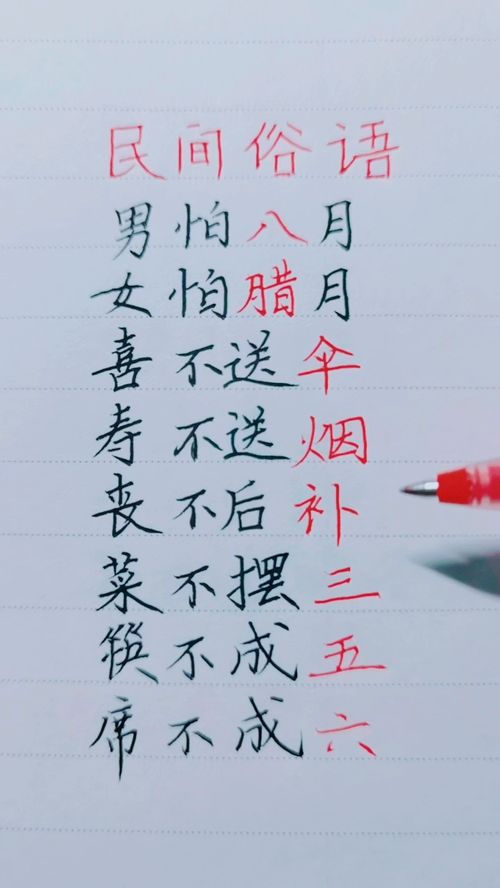 民间俗语
男怕八月
女怕腊月
喜不送伞
寿不送烟
丧不后补
菜不摆三
筷不成五
席不成六